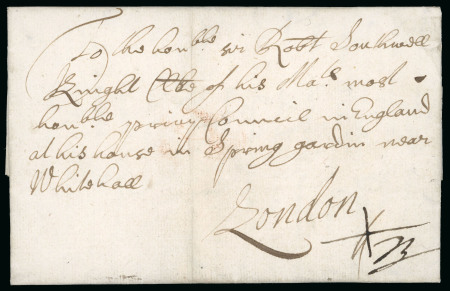 To the hon:ble sir Robt Southwell
Knight Cke of his Ma:s most
hon:ble privy Council in England
at his house in Spring gardin near
Whitehall
London